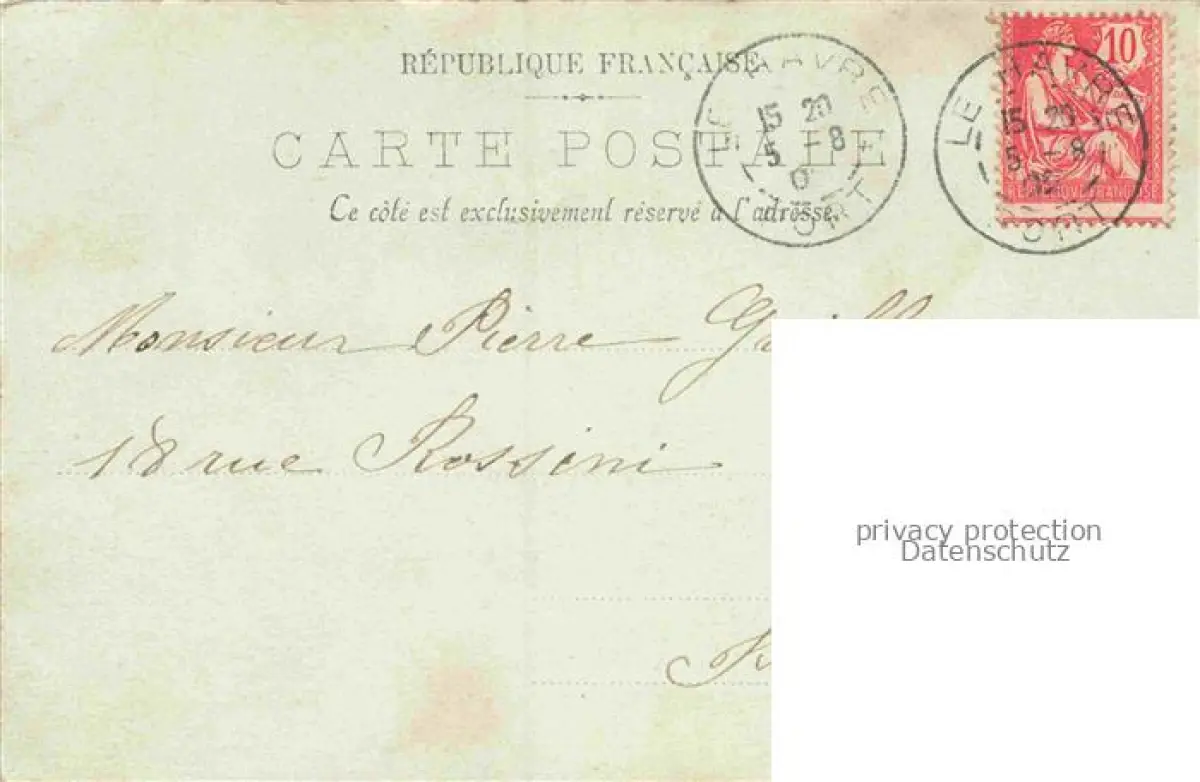 RÉPUBLIQUE FRANÇAISE
CARTE POSTALE
Ce côté est exclusivement réservé à l'adresse.
LE HAVRE
15 20
5 -8
0
PORT
LE HAVRE
15 20
5 -8
PORT
10
FRANÇAISE
Monsieur Pierre
18 rue Rossini
privacy protection
Datenschutz